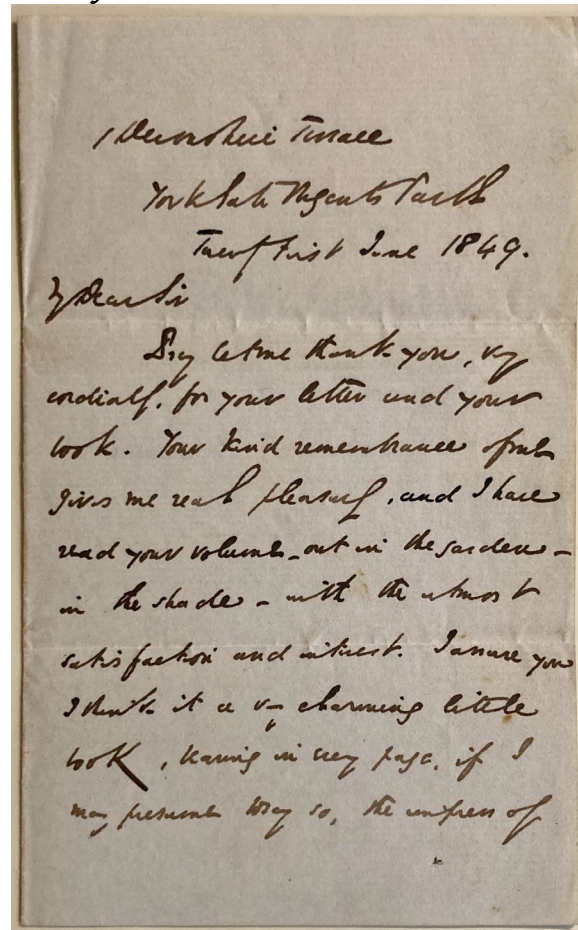 1 Devonshire Terrace
York Gate Regents Park
First June 1849.
My Dear Sir
Pray let me thank you, very
cordially, for your letter and your
book. Your kind remembrance of me
gives me real pleasure, and I have
read your volume - out in the garden -
in the shade - with the utmost
satisfaction and interest. I assure you
I think it a very charming little
book, having in every page, if I
may presume to say so, the impress of